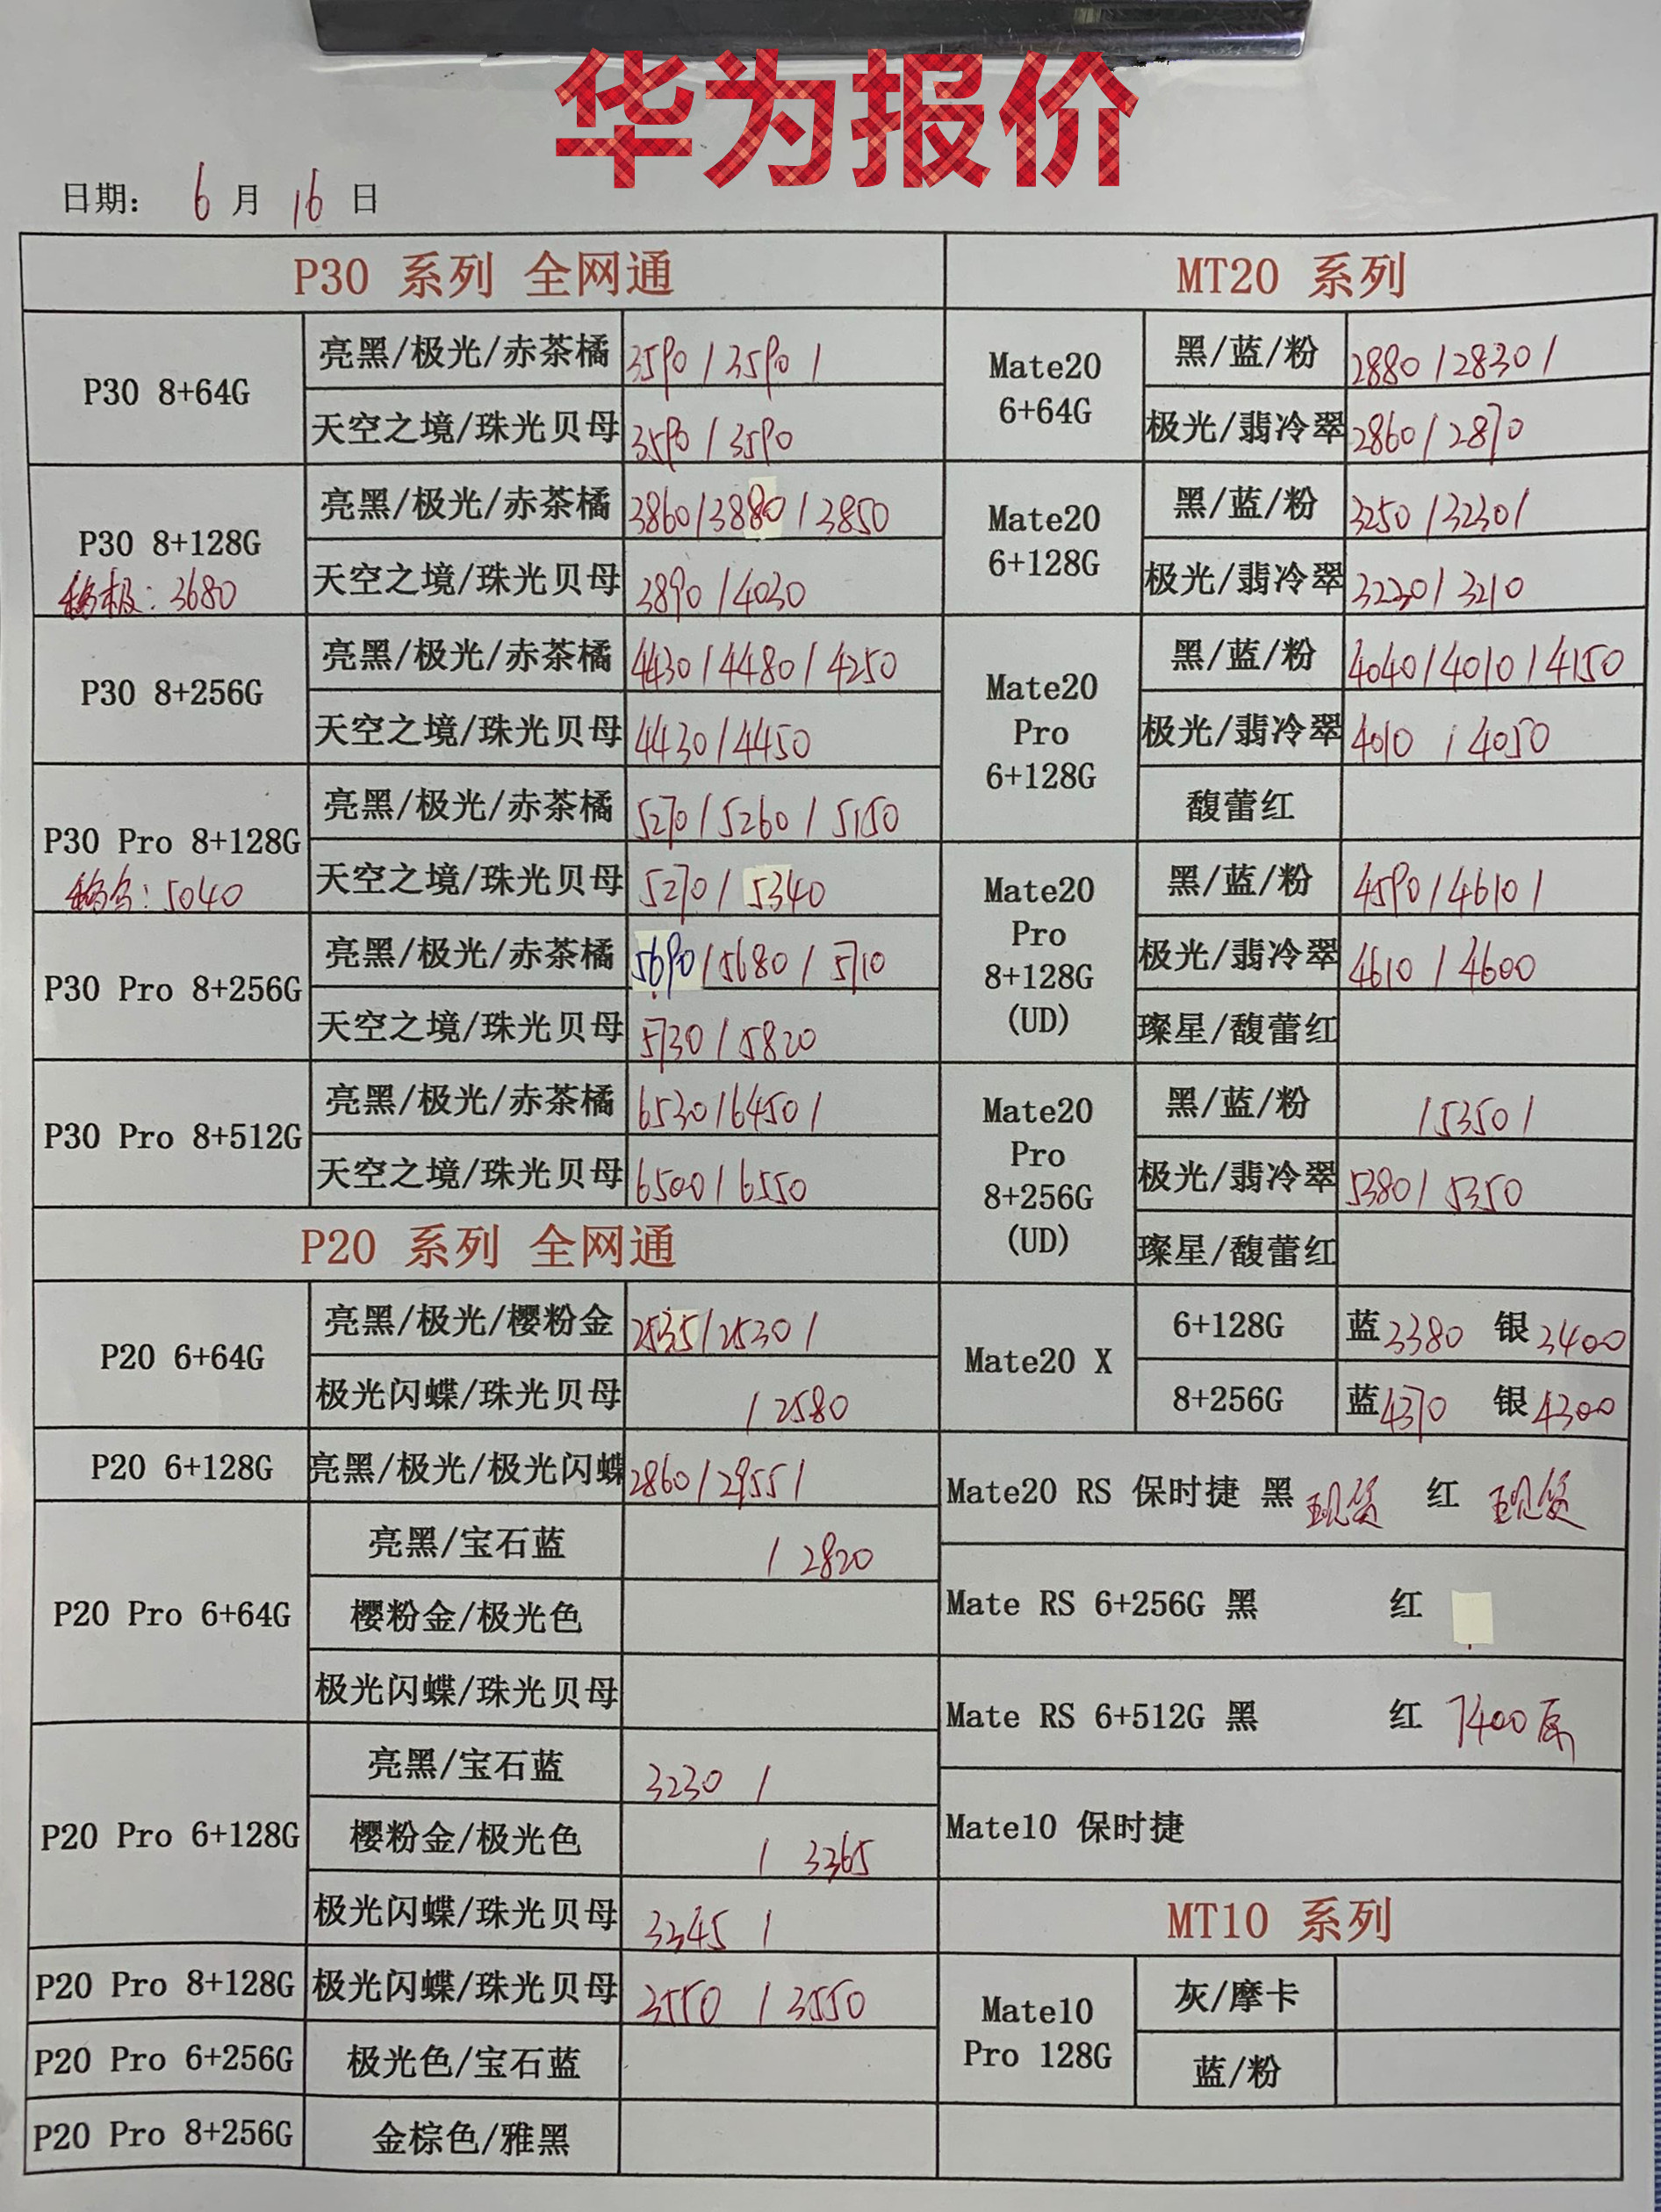 华为报价
日期: 6 月 16 日
P30 系列 全网通
P30 8+64G
亮黑/极光/赤茶橘 3590/3590/
天空之境/珠光贝母 3590/3590
P30 8+128G
移极:3680
亮黑/极光/赤茶橘 3860/3880/3850
天空之境/珠光贝母 3890/4030
P30 8+256G
亮黑/极光/赤茶橘 4430/4480/4250
天空之境/珠光贝母 4430/4450
P30 Pro 8+128G
:5040
亮黑/极光/赤茶橘 5270/5260/5150
天空之境/珠光贝母 5270/5340
P30 Pro 8+256G
亮黑/极光/赤茶橘 5690/5680/5710
天空之境/珠光贝母 5730/5820
P30 Pro 8+512G
亮黑/极光/赤茶橘 6530/6450/
天空之境/珠光贝母 6500/6550
P20 系列 全网通
P20 6+64G
亮黑/极光/樱粉金 2535/2530/
极光闪蝶/珠光贝母 /2580
P20 6+128G
亮黑/极光/极光闪蝶 2860/2955/
P20 Pro 6+64G
亮黑/宝石蓝 /2820
樱粉金/极光色
极光闪蝶/珠光贝母
P20 Pro 6+128G
亮黑/宝石蓝 3230/
樱粉金/极光色 /3365
极光闪蝶/珠光贝母 3345/
P20 Pro 8+128G
极光闪蝶/珠光贝母 3550/3550
P20 Pro 6+256G
极光色/宝石蓝
P20 Pro 8+256G
金棕色/雅黑
MT20 系列
Mate20
6+64G
黑/蓝/粉 2880/2830/
极光/翡冷翠 2860/2870
Mate20
6+128G
黑/蓝/粉 3250/3230/
极光/翡冷翠 3230/3210
Mate20
Pro
6+128G
黑/蓝/粉 4040/4010/4150
极光/翡冷翠 4010/4050
馥蕾红
Mate20
Pro
8+128G
(UD)
黑/蓝/粉 4590/4610/
极光/翡冷翠 4610/4600
璨星/馥蕾红
Mate20
Pro
8+256G
(UD)
黑/蓝/粉 /5350/
极光/翡冷翠 5380/5350
璨星/馥蕾红
Mate20 X
6+128G 蓝3380 银3400
8+256G 蓝4370 银4300
Mate20 RS 保时捷 黑 现货 红 现货
Mate RS 6+256G 黑 红
Mate RS 6+512G 黑 红 7400原
Mate10 保时捷
MT10 系列
Mate10
Pro 128G
灰/摩卡
蓝/粉